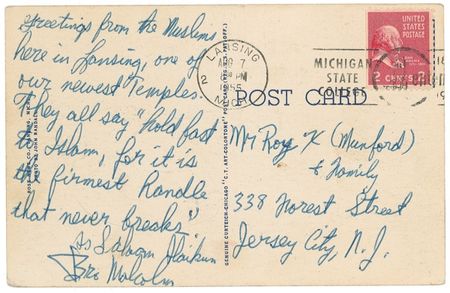 Greetings from the Muslims
here in Lansing, one of
our newest Temples.
They all say "hold fast
to Islam, for it is
the firmest Handle
that never breaks"
As Salaam Alaikum
Bro Malcolm
LANSING
APR 7
PM
1955
MICH
2
MICHIGAN
STATE
COLLEGE
UNITED STATES
POSTAGE
2 CENTS 2
POST CARD
Mr Roy X (Munford)
& Family
338 Forest Street
Jersey City, N.J.
GENUINE CURTEICH-CHICAGO "C.T. ART-COLORTONE" POST CARD